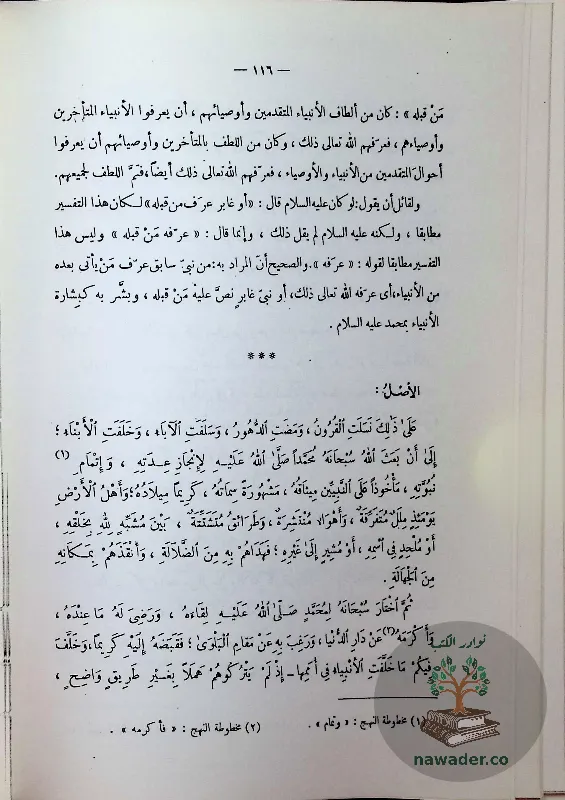 — ١١٦ —
مَنْ قبله » : كان من ألطاف الأنبياء المتقدمين وأوصيائهم ، أن يعرفوا الأنبياء المتأخرين
وأوصياءهم ، فعرّفهم الله تعالى ذلك ، وكان من اللطف بالمتأخرين وأوصيائهم أن يعرفوا
أحوال المتقدمين من الأنبياء والأوصياء ، فعرّفهم الله تعالى ذلك أيضاً ، فتمّ اللطف لجميعهم.
ولقائل أن يقول : لو كان عليه السلام قال : « أو غابر عرف من قبله » لكان هذا التفسير
مطابقا ، ولكنه عليه السلام لم يقل ذلك ، وإنما قال : « عرّفه مَنْ قبله » وليس هذا
التفسير مطابقا لقوله : « عرّفه » . والصحيح أنّ المراد به : من نبيّ سابق عرّف مَنْ يأتى بعده
من الأنبياء ، أى عرّفه الله تعالى ذلك ، أو نبىّ غابرٍ نصّ عليه مَنْ قبله ، وبشّر به كبشارة
الأنبياء بمحمد عليه السلام .
***
الأصل :
عَلَىٰ ذَٰلِكَ نَسَلَتِ ٱلْقُرُونُ ، وَمَضَتِ ٱلدُّهُورُ ، وَسَلَفَتِ ٱلْآبَاءُ ، وَخَلَفَتِ ٱلْأَبْنَاءُ ؛
إِلَىٰ أَنْ بَعَثَ ٱللهُ سُبْحَانَهُ مُحَمَّداً صَلَّىٰ ٱللهُ عَلَيْهِ لِإِنْجَازِ عِدَتِهِ ، وَإِتْمَامِ (١)
نُبُوَّتِهِ ، مَأْخُوذاً عَلَى ٱلنَّبِيِّينَ مِيثَاقُهُ ، مَشْهُورَةً سِمَاتُهُ ، كَرِيماً مِيلَادُهُ ؛ وَأَهْلُ ٱلْأَرْضِ
يَوْمَئِذٍ مِلَلٌ مُتَفَرِّقَةٌ ، وَأَهْوَاءٌ مُنْتَشِرَةٌ ، وَطَرَائِقُ مُتَشَتِّتَةٌ ، بَيْنَ مُشَبِّهٍ لِلهِ بِخَلْقِهِ ،
أَوْ مُلْحِدٍ فِي ٱسْمِهِ ، أَوْ مُشِيرٍ إِلَىٰ غَيْرِهِ ؛ فَهَدَاهُمْ بِهِ مِنَ ٱلضَّلَالَةِ ، وَأَنْقَذَهُمْ بِمَكَانِهِ
مِنَ ٱلْجَهَالَةِ .
ثُمَّ ٱخْتَارَ سُبْحَانَهُ لِمُحَمَّدٍ صَلَّىٰ ٱللهُ عَلَيْهِ لِقَاءَهُ ، وَرَضِيَ لَهُ مَا عِنْدَهُ ،
وَأَكْرَمَهُ (٢) عَنْ دَارِ ٱلدُّنْيَا ، وَرَغِبَ بِهِ عَنْ مَقَامِ ٱلْبَلْوَىٰ ؛ فَقَبَضَهُ إِلَيْهِ كَرِيماً ، وَخَلَّفَ
فِيكُمْ مَا خَلَّفَتِ ٱلْأَنْبِيَاءُ فِي أُمَمِهَا - إِذْ لَمْ يَتْرُكُوهُمْ هَمَلًا بِغَيْرِ طَرِيقٍ وَاضِحٍ ،
(١) مخطوطة النهج : « وتمام » . (٢) مخطوطة النهج : « فأكرمه » .
نوادر الكتب
nawader.co